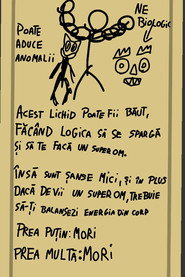 POATE
ADUCE
ANOMALII
NE
BIOLOGIC
ACEST LICHID POATE FII BĂUT,
FĂCÂND LOGICA SĂ SE SPARGĂ
ȘI SĂ TE FACĂ UN SUPEROM.
ÎNSĂ SUNT ȘANSE MICI, ȘI ÎN PLUS
DACĂ DEVII UN SUPEROM, TREBUIE
SĂ-ȚI BALANSEZI ENERGIA DIN CORP
PREA PUȚIN: MORI
PREA MULTĂ: MORI